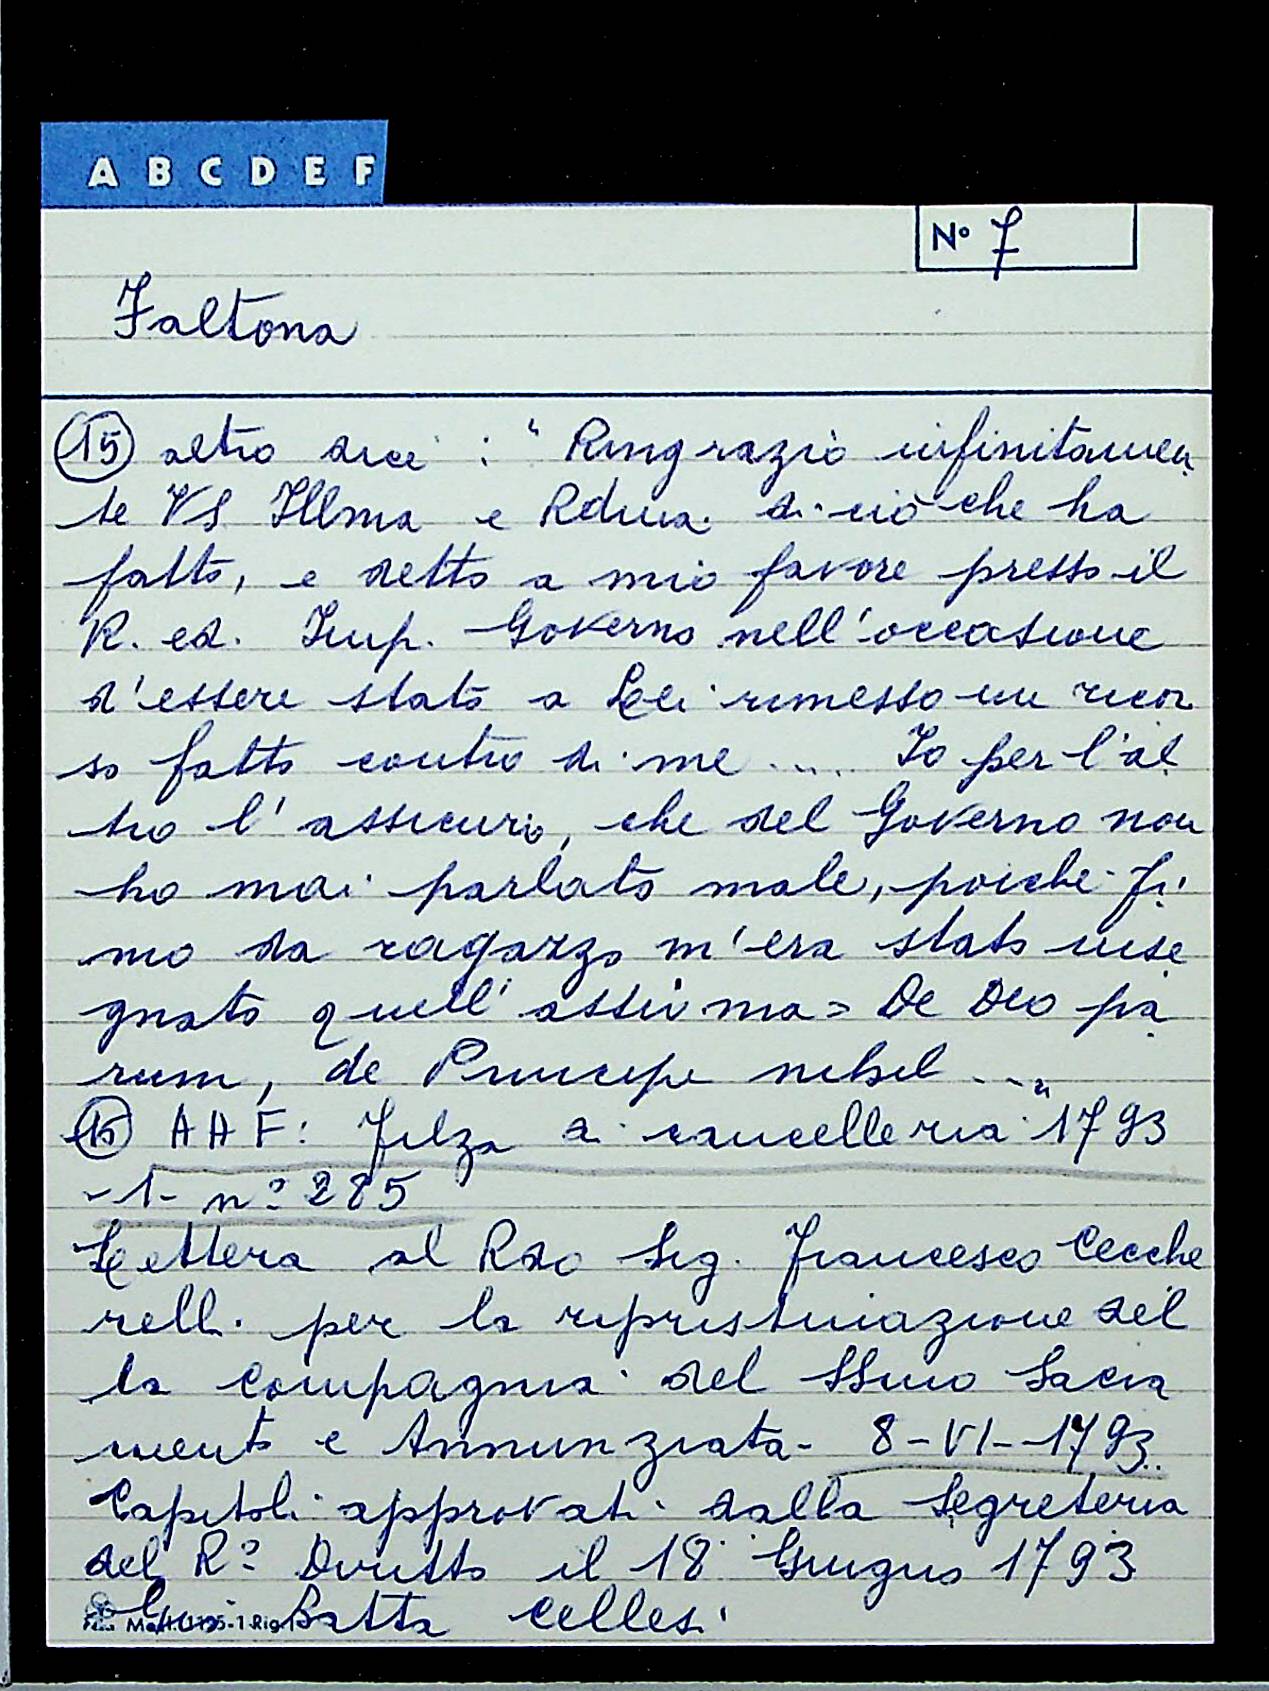 A B C D E F
N° 7
Faltona
(15) altro dice : "Ringrazio infinitamen
te VS Illma e Rdma di ciò che ha
fatto, e detto a mio favore presso il
R. ed. Imp. Governo nell'occasione
d'essere stato a Lei rimesso un ricor
so fatto contro di me .... Io per l'al
tro l'assicuro, che del Governo non
ho mai parlato male, poiche fi
no da ragazzo m'era stato inse
gnato quell'assioma = De Deo pa
rum, de Principe nihil ..."
(16) A A F: Filza di cancelleria 1793
-1- n° 285
Lettera al Rdo Sig. Francesco Cecche
relli per la ripristinazione del
la compagnia del SSmo Sacra
mento e Annunziata - 8-VI-1793.
Capitoli approvati dalla Segreteria
del R° Diritto il 18 Giugno 1793
Gio Batta Cellesi